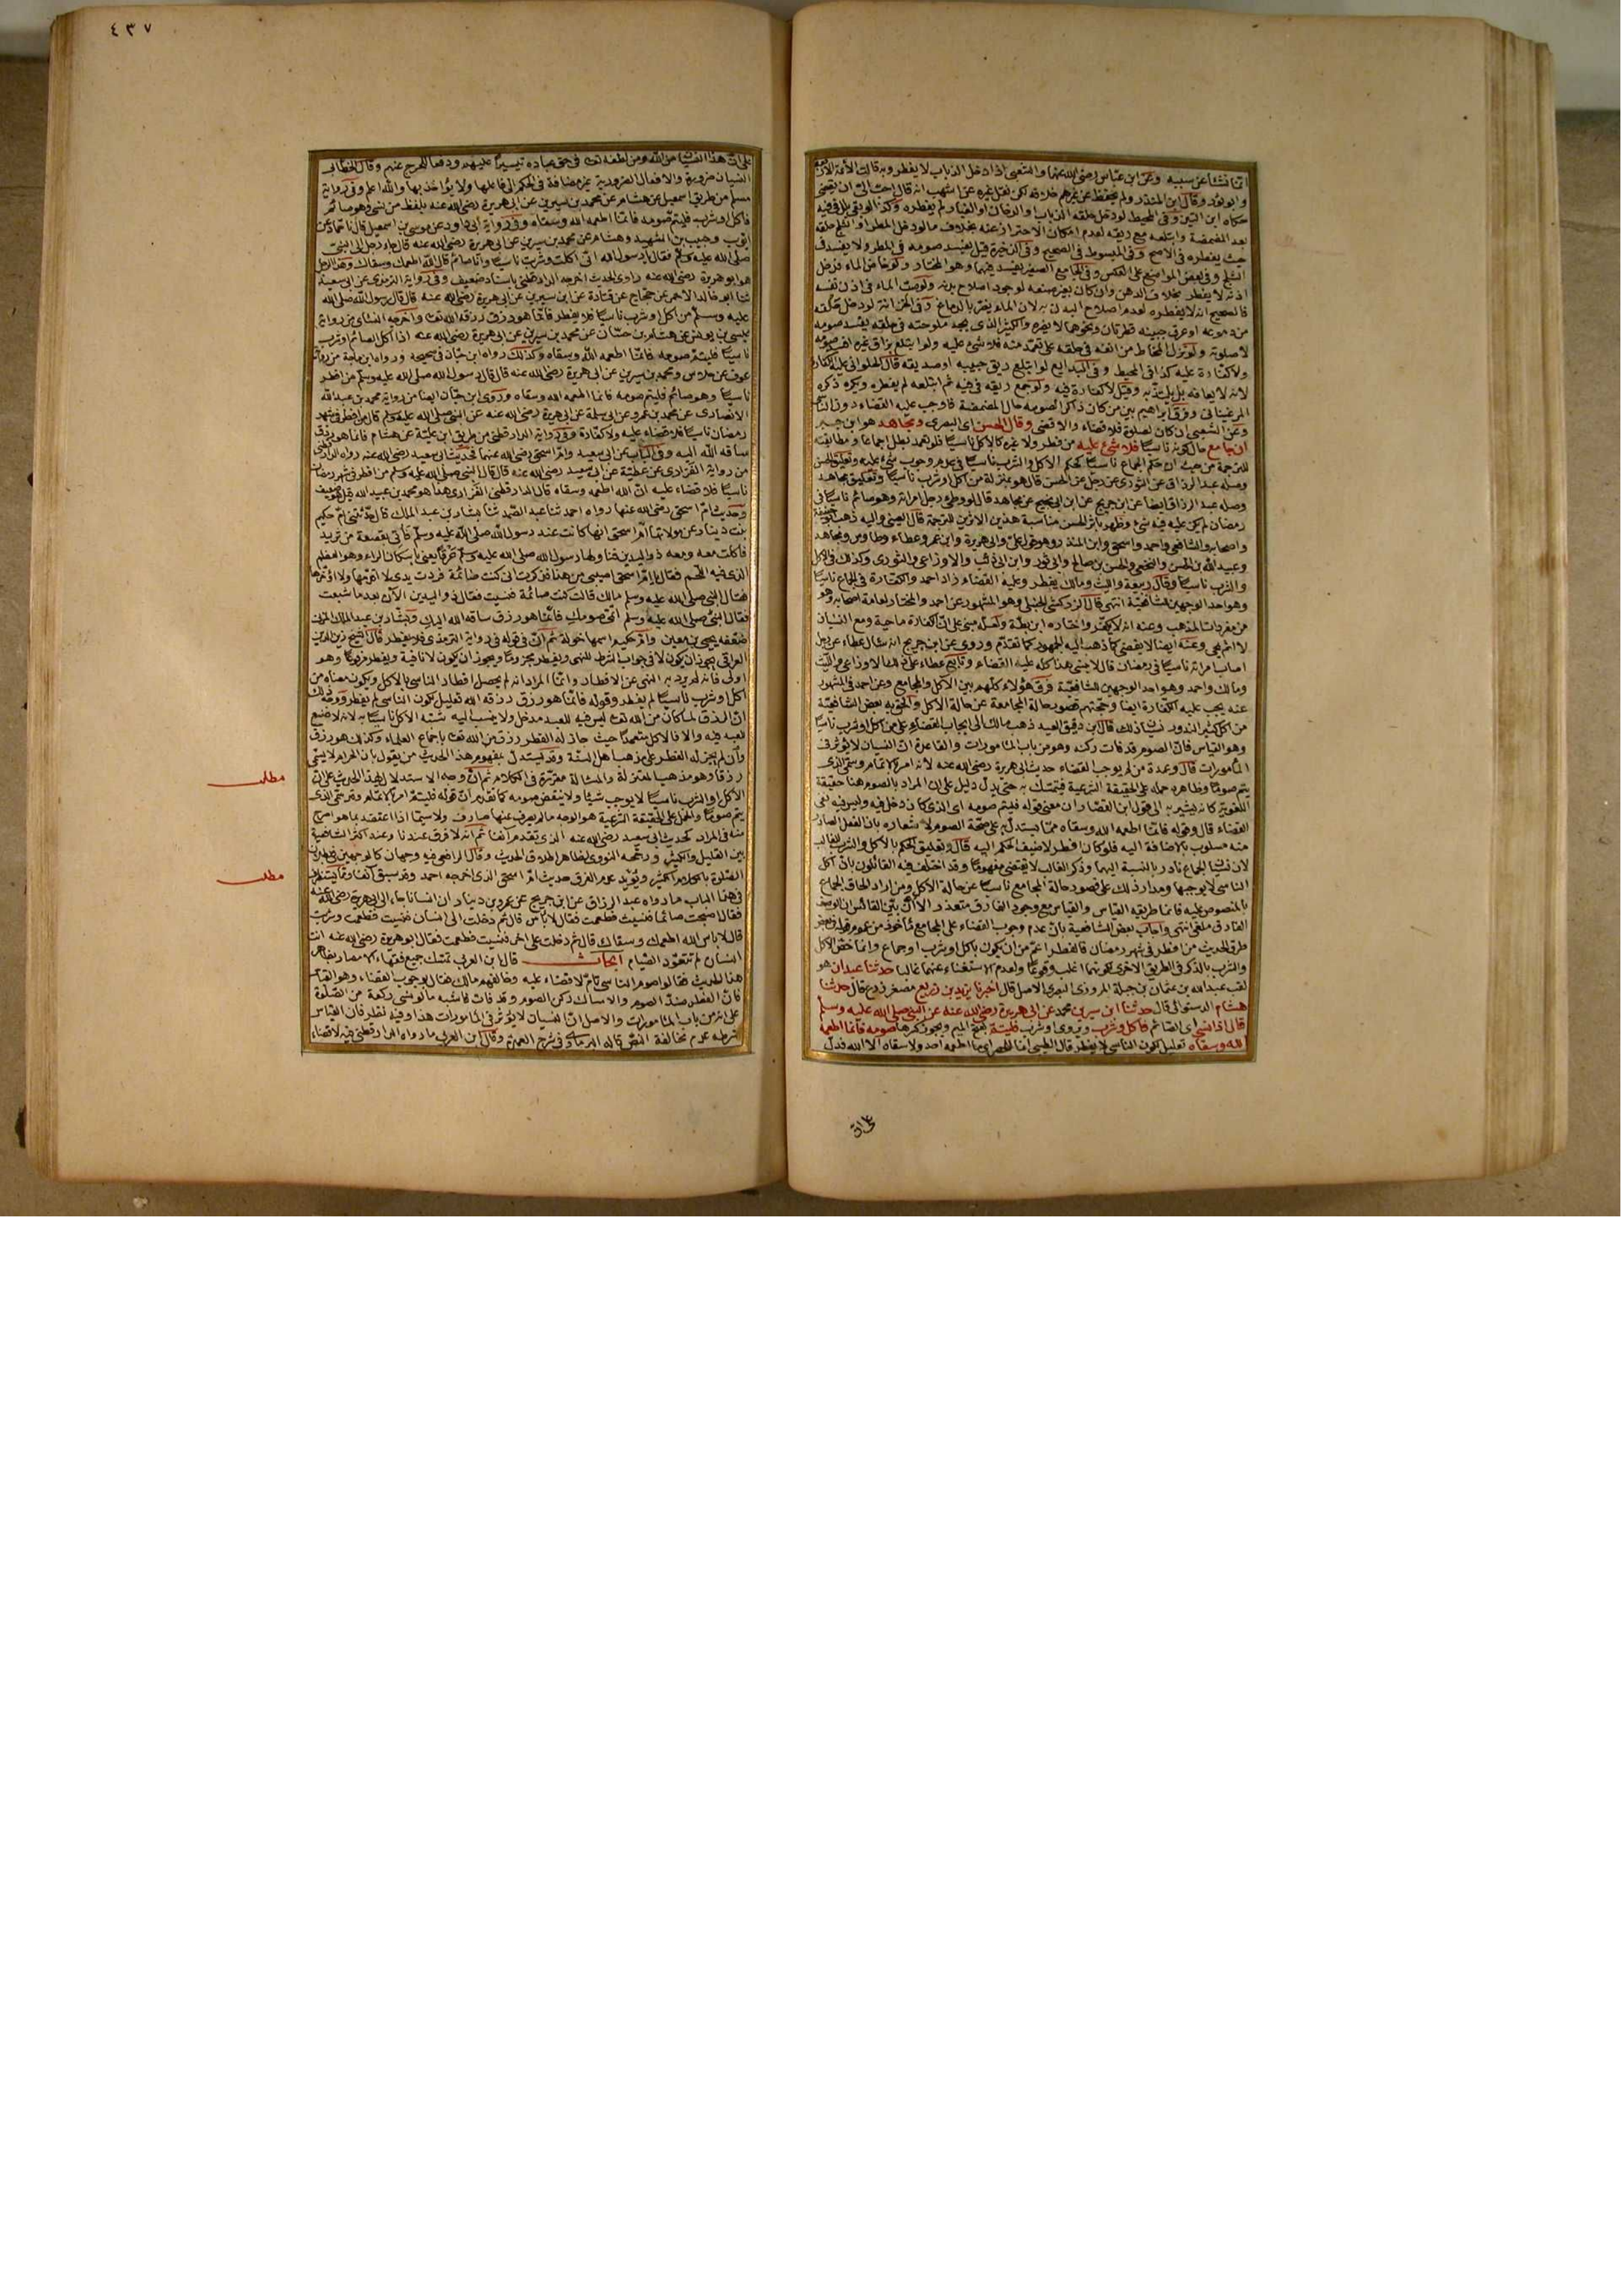 ٤٣٧
وابو ثور وقال ابن المنذر ولم يحفظ عن غيرهم خلافه لكن نقل غيره عن اشهب انه قال احب الي ان يقضي
حكاه ابن التين وفي المحيط لو دخل حلقه الذباب والدخان او الغبار لم يفطره وكذا لو بقي بلل في فيه
بعد المضمضة وابتلعه مع ريقه لعدم امكان الاحتراز عنه بخلاف ما لو دخل المطر او الثلج حلقه
حيث يفطره في الاصح وفي المبسوط في الصحيح وفي الذخيرة قيل يفسد صومه في المطر ولا يفسد في
الثلج وفي بعض المواضع على العكس وفي الجامع الصغير يفسد فيهما وهو المختار ولو خاض الماء فدخل
اذنه لا يفطر بخلاف الدهن وان كان بغير صنعه لوجود اصلاح بدنه ولو صب الماء في اذن نفسه
فالصحيح انه لا يفطره لعدم اصلاح البدن به لان الماء يضر بالدماغ وفي الخزانة لو دخل حلقه
من دموعه او عرق جبينه قطرتان ونحوهما لا يضره والكثير الذي يجد ملوحته في حلقه يفسد صومه
لا صلوته ولو نزل المخاط من انفه في حلقه على تعمد منه فلا شيء عليه ولو ابتلع بزاق غيره افسد صومه
ولا كفارة عليه كذا في المحيط وفي البدايع لو ابتلع ريق حبيبه او صديقه قال الحلواني عليه الكفارة
لانه لا يعافه بل يلتذ به وقيل لا كفارة فيه ولو جمع ريقه في فيه ثم ابتلعه لم يفطره ويكره ذكره
المرغيناني وفرق ابراهيم بين من كان ذاكرا لصومه حال المضمضة فاوجب عليه القضاء دون الناسي
وعن الشعبي ان كان لصلوة فلا قضاء والا قضى وقال الحسن اي البصري ومجاهد هو ابن جبير
ان جامع حال كونه ناسيا فلا شيء عليه من فطر ولا غيره كالاكل ناسيا فلو تعمد بطل اجماعا ومطابقته
للترجمة من حيث ان حكم الجماع ناسيا كحكم الاكل والشرب ناسيا في عدم وجوب شيء عليه وتعليق الحسن
وصله عبد الرزاق عن الثوري عن رجل عن الحسن قال هو بمنزلة من اكل او شرب ناسيا وتعليق مجاهد
وصله عبد الرزاق ايضا عن ابن جريج عن ابن ابي نجيح عن مجاهد قال لو وطئ رجل امراته وهو صائم ناسيا في
رمضان لم يكن عليه فيه شيء وظهر باثر الحسن مناسبة هذين الاثرين للترجمة قال العيني واليه ذهب ابو حنيفة
واصحابه والشافعي واحمد واسحق وابن المنذر وهو قول علي وابي هريرة وابن عمر وعطاء وطاوس ومجاهد
وعبيد الله بن الحسن والنخعي والحسن بن صالح وابي ثور وابن ابي ذئب والاوزاعي والثوري وكذلك في الاكل
والشرب ناسيا وقال ربيعة والليث ومالك يفطر وعليه القضاء زاد احمد والكفارة في الجماع ناسيا
وهو احد الوجهين للشافعية انتهى قال الزركشي الحنبلي وهو المشهور عن احمد والمختار لعامة اصحابه وهو
من مفردات المذهب وعنه انه لا يكفر واختاره ابن بطة ولعله مبني على ان الكفارة ماحية ومع النسيان
لا اثم يمحى وعنه ايضا لا يقضي كما ذهب اليه الجمهور كما تقدم وروي عن ابن جريج انه سأل عطاء عن رجل
اصاب امراته ناسيا في رمضان قال لا ينسى هذا كله عليه القضاء وتابع عطاء على ذلك الاوزاعي والليث
ومالك واحمد وهو احد الوجهين للشافعية وفرق هؤلاء كلهم بين الاكل والمجامع وعن احمد في المشهور
عنه يجب عليه الكفارة ايضا وحجتهم قصور حالة المجامعة عن حالة الاكل والحق به بعض الشافعية
من اكل كثيرا لندور نسيان ذلك قال ابن دقيق العيد ذهب مالك الى ايجاب القضاء على من اكل او شرب ناسيا
وهو القياس فان الصوم قد فات ركنه وهو من باب المامورات والقاعدة ان النسيان لا يؤثر في
المأمورات قال وعمدة من لم يوجب القضاء حديث ابي هريرة رضي الله عنه لانه امر بالاتمام وسمى الذي
يتم صوما وظاهره حمله على الحقيقة الشرعية فيتمسك به حتى يدل دليل على ان المراد بالصوم هنا حقيقة
اللغوية كانه يشير به الى قول ابن القصار ان معنى قوله فليتم صومه اي الذي كان دخل فيه وليس فيه نفي
القضاء قال وقوله فانما اطعمه الله وسقاه مما يستدل به على صحة الصوم لاشعاره بان الفعل الصادر
منه مسلوب بالاضافة اليه فلو كان افطر لاضيف الحكم اليه قال وتعليق الحكم بالاكل والشرب للغالب
لان نسيان الجماع نادر بالنسبة اليهما وذكر الغالب لا يقتضي مفهوما وقد اختلف فيه القائلون بان اكل
الناسي لا يوجبها ومدار ذلك على قصور حالة المجامع ناسيا عن حالة الاكل ومن اراد الحاق الجماع
بالمنصوص عليه فانما طريقه القياس والقياس مع وجود الفارق متعذر الا ان بين القائس ان الوصف
الفارق ملغى انتهى واجاب بعض الشافعية بان عدم وجوب القضاء على المجامع مأخوذ من عموم قوله في بعض
طرق الحديث من افطر في شهر رمضان فالفطر اعم من ان يكون باكل او شرب او جماع وانما خص الاكل
والشرب بالذكر في الطريق الاخرى لكونهما اغلب وقوعا ولعدم الاستغناء عنهما غالبا حدثنا عبدان هو
لقب عبد الله بن عثمان بن جبلة المروزي البصري الاصل قال اخبرنا يزيد بن زريع مصغر زرع قال حدثنا
هشام الدستوائي قال حدثنا ابن سيرين محمد عن ابي هريرة رضي الله عنه عن النبي صلى الله عليه وسلم
قال اذا نسي اي الصائم فاكل وشرب ويروى او شرب فليتم بفتح الميم ويجوز كسرها صومه فانما اطعمه
الله وسقاه تعليل لكون الناسي لا يفطر قال الطيبي انما للحصر اي ما اطعمه احد ولا سقاه الا الله فدل
على ان
على ان هذا النسيان من الله ومن لطفه تعا في حق عباده تيسيرا عليهم ودفعا للحرج عنهم وقال الخطابي
النسيان ضرورة والافعال الضرورية غير مضافة في الحكم الى فاعلها ولا يؤاخذ بها والله اعلم وفي رواية
مسلم من طريق اسمعيل عن هشام عن محمد بن سيرين عن ابي هريرة رضي الله عنه بلفظ من نسي وهو صائم
فاكل او شرب فليتم صومه فانما اطعمه الله وسقاه وفي رواية ابي داود عن موسى بن اسمعيل قال نا حماد عن
ايوب وحبيب بن الشهيد وهشام عن محمد بن سيرين عن ابي هريرة رضي الله عنه قال جاء رجل الى النبي
صلى الله عليه وسلم فقال يا رسول الله اني اكلت وشربت ناسيا وانا صائم قال الله اطعمك وسقاك وهذا الرجل
هو ابو هريرة رضي الله عنه راوي الحديث اخرجه الدارقطني باسناد ضعيف وفي رواية الترمذي عن ابي سعيد
ثنا ابو خالد الاحمر عن حجاج عن قتادة عن ابن سيرين عن ابي هريرة رضي الله عنه قال قال رسول الله صلى الله
عليه وسلم من اكل او شرب ناسيا فلا يفطر فانما هو رزق رزقه الله تعا واخرجه النسائي من رواية
عيسى بن يونس عن هشام بن حسان عن محمد بن سيرين عن ابي هريرة رضي الله عنه اذا اكل الصائم او شرب
ناسيا فليتم صومه فانما اطعمه الله وسقاه وكذلك رواه ابن حبان في صحيحه ورواه ابن ماجة من رواية
عوف عن خلاس ومحمد بن سيرين عن ابي هريرة رضي الله عنه قال قال رسول الله صلى الله عليه وسلم من افطر
ناسيا وهو صائم فليتم صومه فانما اطعمه الله وسقاه وروى ابن حبان ايضا من رواية محمد بن عبد الله
الانصاري عن محمد بن عمرو عن ابي سلمة عن ابي هريرة رضي الله عنه عن النبي صلى الله عليه وسلم قال من افطر في شهر
رمضان ناسيا فلا قضاء عليه ولا كفارة وفي رواية الدارقطني من طريق ابن علية عن هشام فانما هو رزق
ساقه الله اليه وفي الباب عن ابي سعيد وام اسحق رضي الله عنهما فحديث ابي سعيد رضي الله عنه رواه الدارقطني
من رواية الفزاري عن عطية عن ابي سعيد رضي الله عنه قال قال النبي صلى الله عليه وسلم من افطر في شهر رمضان
ناسيا فلا قضاء عليه ان الله اطعمه وسقاه قال الدارقطني الفزاري هذا هو محمد بن عبيد الله
وحديث ام اسحق رضي الله عنها رواه احمد ثنا عبد الصمد ثنا بشار بن عبد الملك قال حدثتني ام حكيم
بنت دينار عن مولاتها ام اسحق انها كانت عند رسول الله صلى الله عليه وسلم فأتي بقصعة من ثريد
فاكلت معه ومعه ذو اليدين فناولها رسول الله صلى الله عليه وسلم عرقا يعني باسكان الراء وهو العظم
الذي فيه اللحم فقال يا ام اسحق اصيبي من هذا فذكرت اني كنت صائمة فردت يدي لا اقدمها ولا اؤخرها
فقال النبي صلى الله عليه وسلم مالك قالت كنت صائمة فنسيت فقال ذو اليدين الآن بعد ما شبعت
فقال النبي صلى الله عليه وسلم اتمي صومك فانما هو رزق ساقه الله اليك وبشار بن عبد الملك المزني
ضعفه يحيى بن معين وام حكيم اسمها خولة ثم ان في قوله في رواية الترمذي فلا يفطر قال الشيخ زين الدين
العراقي يجوز ان يكون لا في جواب الشرط للنهي ويفطر مجزوما ويجوز ان يكون لا نافية ويفطر مرفوعا وهو
اولى فانه لم يرد به النهي عن الافطار وانما المراد انه لم يحصل افطار الناسي بالاكل ويكون معناه من
اكل او شرب ناسيا لم يفطر وقوله فانما هو رزق رزقه الله تعليل لكون الناسي لم يفطر ووجه ذلك
ان الرزق لما كان من الله تعا ليس فيه للعبد مدخل ولا ينسب اليه شبه الاكل ناسيا به لانه لا صنع
للعبد فيه والا فالاكل متعمدا حيث جاز له الفطر رزق من الله تعا باجماع العلماء وكذلك هو رزق
وان لم يجز له الفطر على مذهب اهل السنة وقد يستدل بمفهوم هذا الحديث من يقول بان الحرام لا يسمى
رزقا وهو مذهب المعتزلة والمسألة مقررة في الكلام ثم ان وجه الاستدلال بهذا الحديث على ان
الاكل او الشرب ناسيا لا يوجب شيئا ولا ينقض صومه كما تقدم ان قوله فليتم امر بالاتمام وقد سمى الذي
يتم صوما والحمل على الحقيقة الشرعية هو الوجه ما لم يصرف عنها صارف ولا سيما اذا اعتضد بما هو اصرح
منه في المراد كحديث ابي سعيد رضي الله عنه الذي تقدم آنفا ثم انه لا فرق عندنا وعند اكثر الشافعية
بين القليل والكثير ورجحه النووي لظاهر اطلاق الحديث وقال الرافعي فيه وجهان كالوجهين في بطلان
الصلوة بالكلام الكثير ويؤيد عدم الفرق حديث ام اسحق الذي اخرجه احمد وقد سبق آنفا ومما يستظرف
في هذا الباب ما رواه عبد الرزاق عن ابن جريج عن عمرو بن دينار ان انسانا جاء الى ابي هريرة رضي الله عنه
فقال اصبحت صائما فنسيت فطعمت فقال لا بأس قال ثم دخلت الى انسان فنسيت فطعمت وشربت
قال لا بأس الله اطعمك وسقاك قال ثم دخلت على اخر فنسيت فطعمت فقال ابو هريرة رضي الله عنه انت
انسان لم تتعود الصيام ابحاث قال ابن العربي تمسك جميع فقهاء الامصار بظاهر
هذا الحديث فقالوا صوم الناسي تام لا قضاء عليه وخالفهم مالك فقال بوجوب القضاء وهو القياس
فان الفطر ضد الصوم والامساك ركن الصوم وقد فات فاشبه ما لو نسي ركعة من الصلوة
على انه من باب المامورات والاصل ان النسيان لا يؤثر في المامورات هذا وفيه نظر فان القياس
شرطه عدم مخالفة النص قاله البرماوي في شرح العمدة وقال ابن العربي ما رواه الدارقطني فيه لا قضاء
مطلب
مطلب